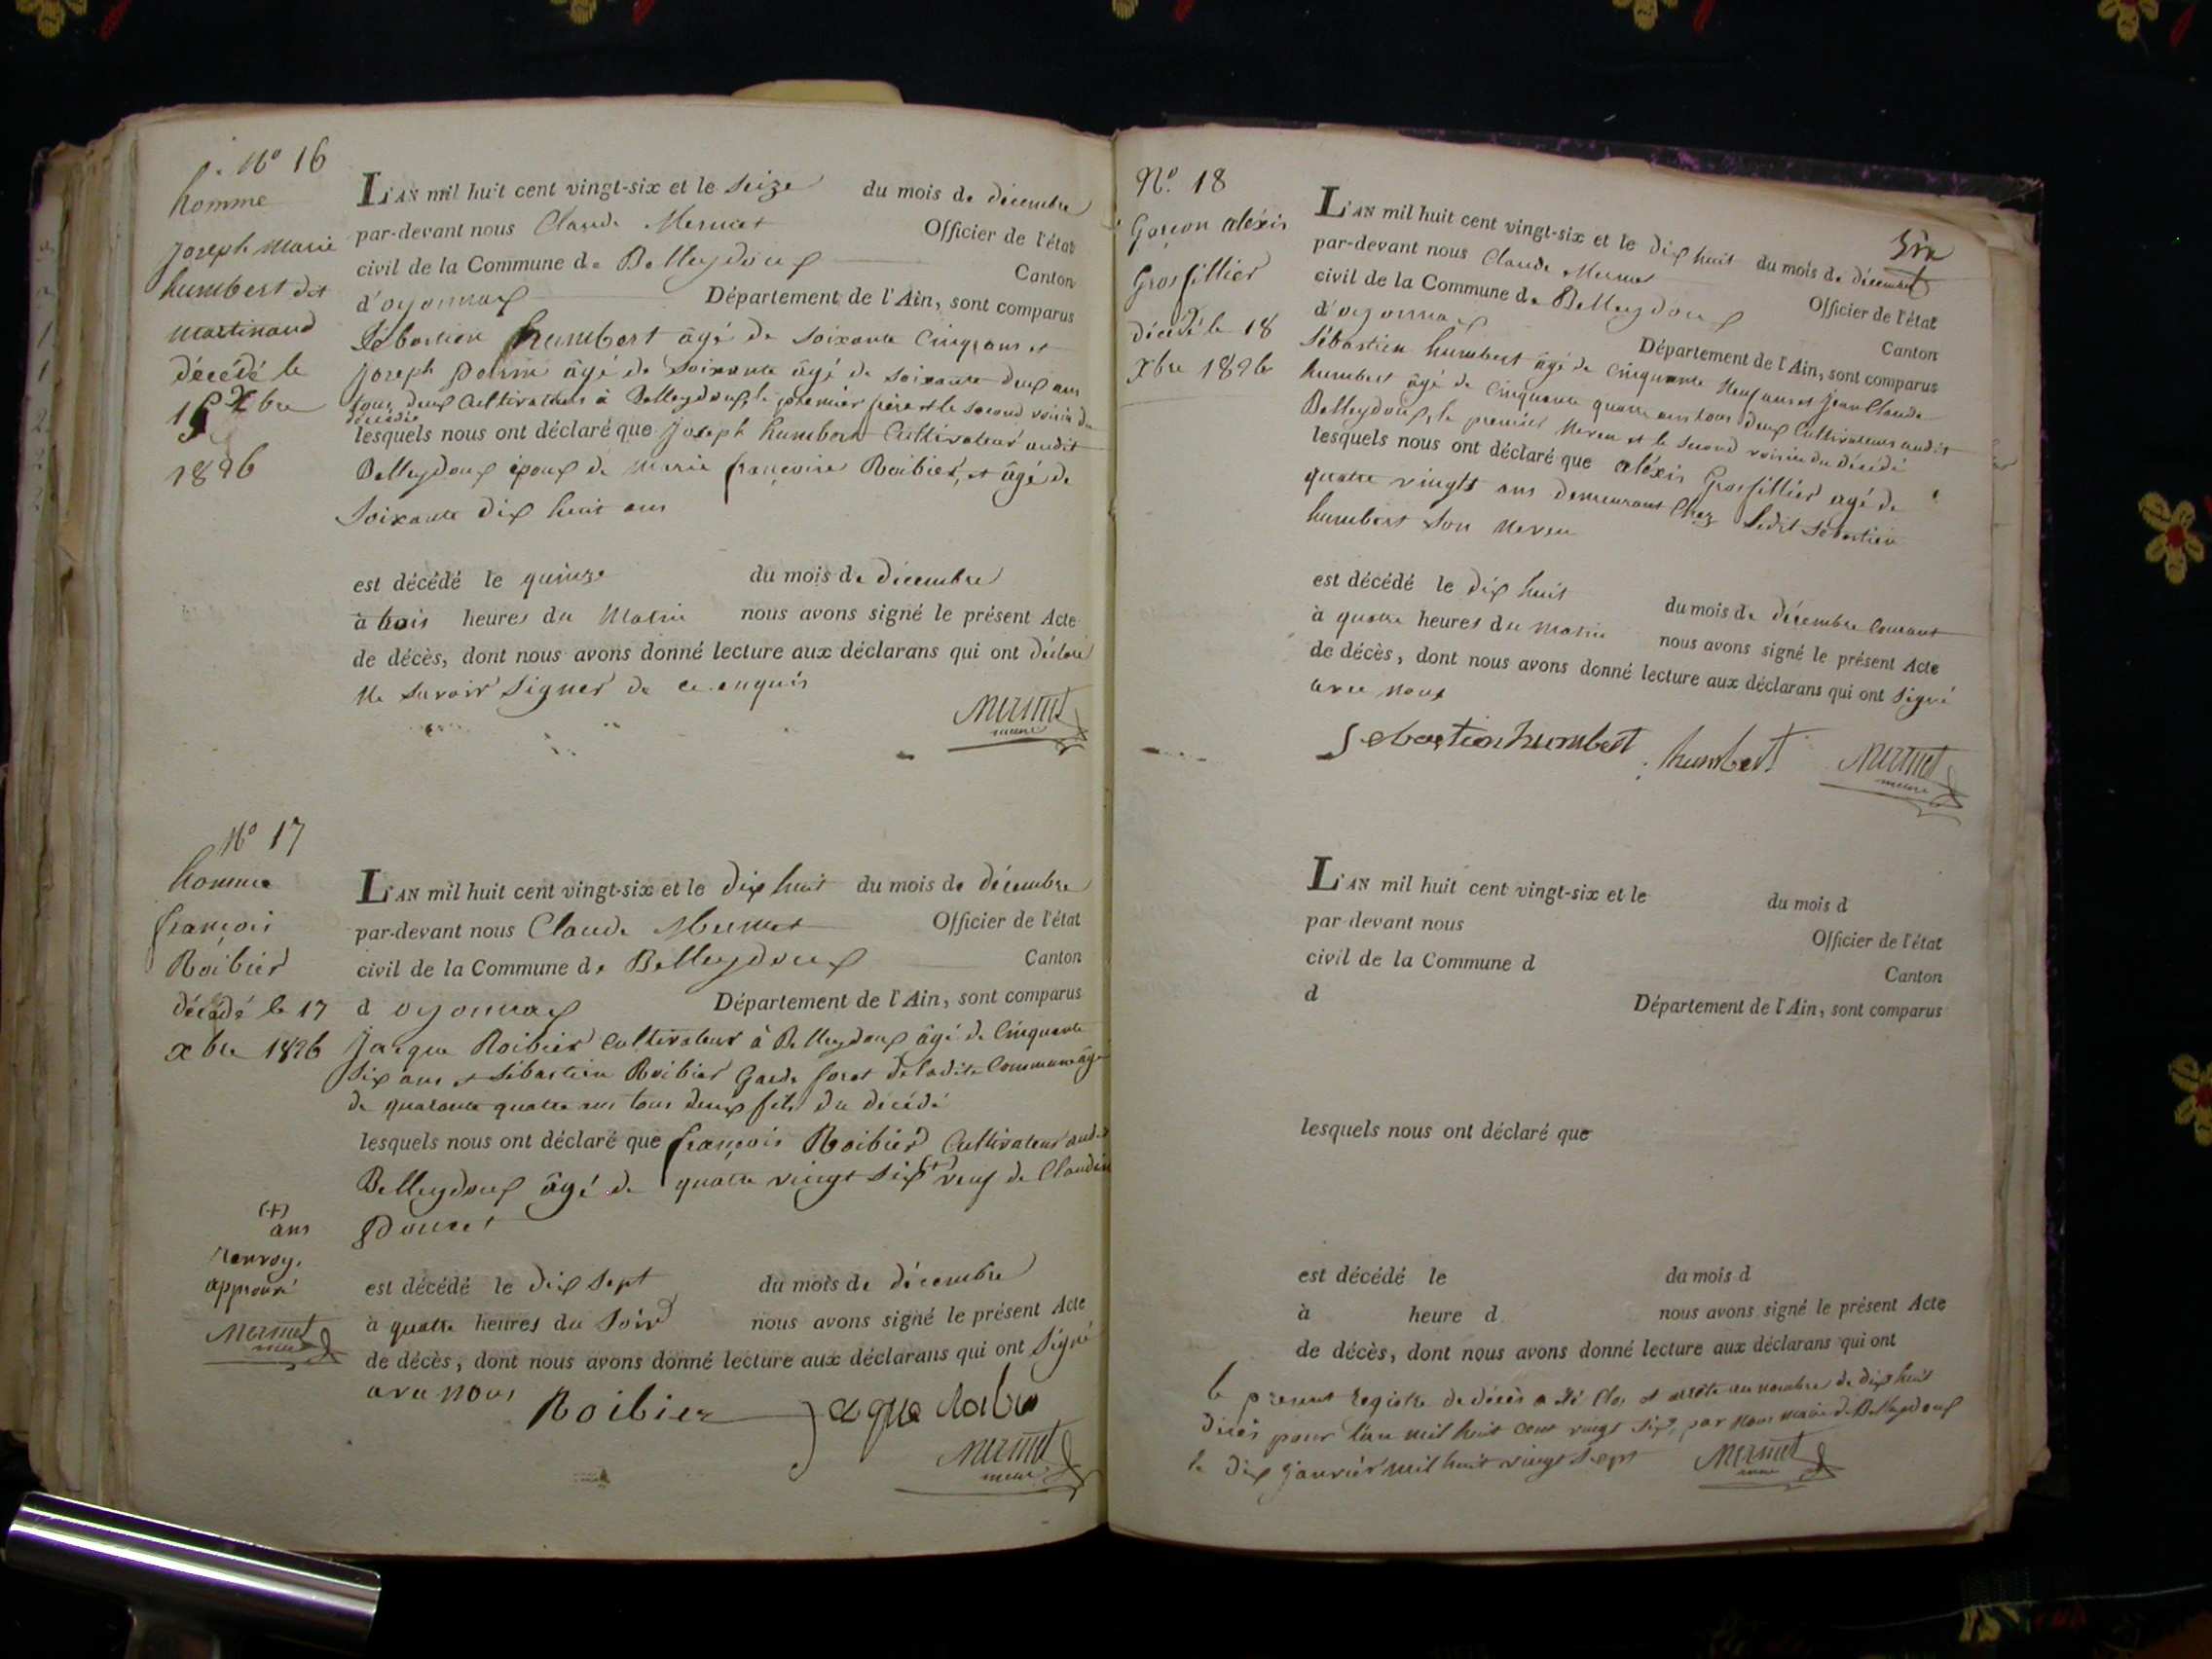 N° 16
homme
joseph Marie
humbert dit
Martinand
décédé le
15 Xbre
1826
L'AN mil huit cent vingt-six et le seize du mois de décembre
par-devant nous Claude Mermet Officier de l'état
civil de la Commune de Belleydoux Canton
d'oyonnax Département de l'Ain, sont comparus
Sébastien humbert âgé de soixante Cinq ans et
joseph âgé de soixante âgé de soixante deux ans
tous deux Cultivateurs à Belleydoux, le premier frère et le second voisin du
décédée
lesquels nous ont déclaré que joseph humbert Cultivateur audit
Belleydoux époux de Marie françoise Roibier, et âgé de
Soixante dix huit ans
est décédé le quinze du mois de décembre
à trois heures du Matin nous avons signé le présent Acte
de décès, dont nous avons donné lecture aux déclarans qui ont déclaré
Ne savoir Signer de ce enquis
Mermet
maire
N° 17
homme
françois
Roibier
décédé le 17
xbre 1826
L'AN mil huit cent vingt-six et le dix huit du mois de décembre
par-devant nous Claude Mermet Officier de l'état
civil de la Commune de Belleydoux Canton
d oyonnax Département de l'Ain, sont comparus
Jacque Roibier Cultivateur à Belleydoux âgé de Cinquante
Six ans et Sébastien Roibier Garde foret de ladite Commune âgé
de quarante quatre ans tous deux fils du décédé
lesquels nous ont déclaré que françois Roibier Cultivateur audit
Belleydoux âgé de quatre vingt Six (+) veuf de Claudine
Poncet
(+)
ans
renvoy.
approuvé
Mermet
maire
est décédé le dix sept du mois de décembre
à quatre heures du Soir nous avons signé le présent Acte
de décès, dont nous avons donné lecture aux déclarans qui ont Signé
avec nous
Roibier
Mermet
maire
N°. 18
Garçon aléxis
Grosfillier
décédé le 18
Xbre 1826
L'AN mil huit cent vingt-six et le dix huit du mois de décembre
par-devant nous Claude Mermet Officier de l'état
civil de la Commune de Belleydoux Canton
d'oyonnax Département de l'Ain, sont comparus
Sébastien humbert âgé de Cinquante Neuf ans et Jean Claude
humbert âgé de Cinquante quatre ans tous deux Cultivateurs audit
Belleydoux, le premier Neveu et le second voisin du décédé
lesquels nous ont déclaré que aléxis Grosfillier agé de
quatre vingts ans demeurant Chez ledit Sébastien
humbert son Neveu
est décédé le dix huit du mois de décembre Courant
à quatre heures du matin nous avons signé le présent Acte
de décès, dont nous avons donné lecture aux déclarans qui ont Signé
avec nous
Sebastien humbert humbert Mermet
maire
L'AN mil huit cent vingt-six et le du mois d
par-devant nous Officier de l'état
civil de la Commune d Canton
d Département de l'Ain, sont comparus
lesquels nous ont déclaré que
est décédé le du mois d
à heure d nous avons signé le présent Acte
de décès, dont nous avons donné lecture aux déclarans qui ont
le présent Registre de décès a été Clos et arrêté au nombre de dix huit
décès pour l'an mil huit cent vingt six, par Nous maire de Belleydoux
le dix janvier mil huit vingt Sept
Mermet
maire